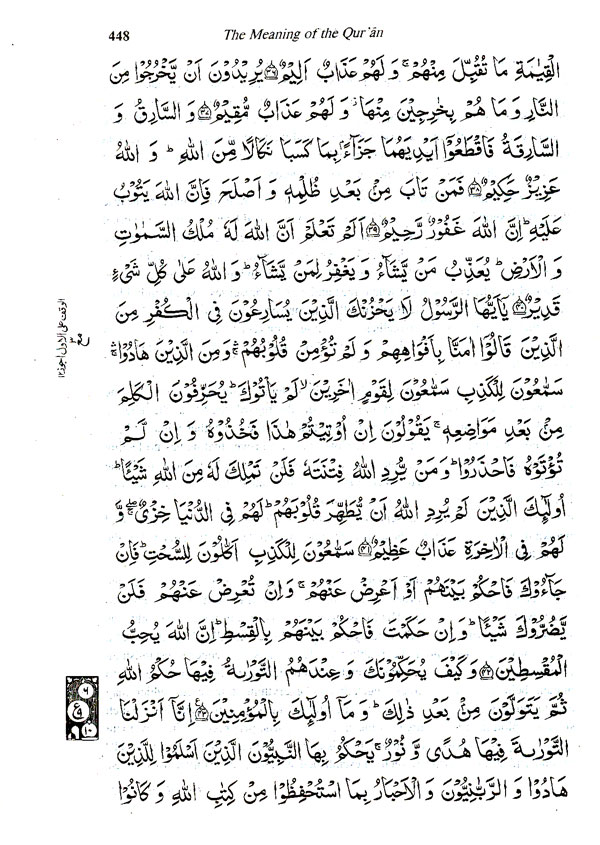 448
The Meaning of the Qur'ān
الْقِيٰمَةِ مَا تُقُبِّلَ مِنْهُمْ ۚ وَلَهُمْ عَذَابٌ اَلِيْمٌ ﴿۳۶﴾ يُرِيْدُوْنَ اَنْ يَّخْرُجُوْا مِنَ
النَّارِ وَمَا هُمْ بِخٰرِجِيْنَ مِنْهَا ۫ وَلَهُمْ عَذَابٌ مُّقِيْمٌ ﴿۳۷﴾ وَ السَّارِقُ وَ
السَّارِقَةُ فَاقْطَعُوْٓا اَيْدِيَهُمَا جَزَآءًۢ بِمَا كَسَبَا نَكَالًا مِّنَ اللّٰهِ ؕ وَ اللّٰهُ
عَزِيْزٌ حَكِيْمٌ ﴿۳۸﴾ فَمَنْ تَابَ مِنْۢ بَعْدِ ظُلْمِهٖ وَ اَصْلَحَ فَاِنَّ اللّٰهَ يَتُوْبُ
عَلَيْهِ ؕ اِنَّ اللّٰهَ غَفُوْرٌ رَّحِيْمٌ ﴿۳۹﴾ اَلَمْ تَعْلَمْ اَنَّ اللّٰهَ لَهٗ مُلْكُ السَّمٰوٰتِ
وَ الْاَرْضِ ؕ يُعَذِّبُ مَنْ يَّشَآءُ وَ يَغْفِرُ لِمَنْ يَّشَآءُ ؕ وَ اللّٰهُ عَلٰى كُلِّ شَىْءٍ
قَدِيْرٌ ﴿۴۰﴾ يٰٓاَيُّهَا الرَّسُوْلُ لَا يَحْزُنْكَ الَّذِيْنَ يُسَارِعُوْنَ فِى الْكُفْرِ مِنَ
الَّذِيْنَ قَالُوْٓا اٰمَنَّا بِاَفْوَاهِهِمْ وَ لَمْ تُؤْمِنْ قُلُوْبُهُمْ ۛۚ وَمِنَ الَّذِيْنَ هَادُوْا ۛۚ
سَمّٰعُوْنَ لِلْكَذِبِ سَمّٰعُوْنَ لِقَوْمٍ اٰخَرِيْنَ ۙ لَمْ يَاْتُوْكَ ؕ يُحَرِّفُوْنَ الْكَلِمَ
مِنْۢ بَعْدِ مَوَاضِعِهٖ ۚ يَقُوْلُوْنَ اِنْ اُوْتِيْتُمْ هٰذَا فَخُذُوْهُ وَ اِنْ لَّمْ
تُؤْتَوْهُ فَاحْذَرُوْا ؕ وَمَنْ يُّرِدِ اللّٰهُ فِتْنَتَهٗ فَلَنْ تَمْلِكَ لَهٗ مِنَ اللّٰهِ شَيْـًٔا ؕ
اُولٰٓئِكَ الَّذِيْنَ لَمْ يُرِدِ اللّٰهُ اَنْ يُّطَهِّرَ قُلُوْبَهُمْ ؕ لَهُمْ فِى الدُّنْيَا خِزْىٌ ۖۚ وَّ
لَهُمْ فِى الْاٰخِرَةِ عَذَابٌ عَظِيْمٌ ﴿۴۱﴾ سَمّٰعُوْنَ لِلْكَذِبِ اَكّٰلُوْنَ لِلسُّحْتِ ؕ فَاِنْ
جَآءُوْكَ فَاحْكُمْ بَيْنَهُمْ اَوْ اَعْرِضْ عَنْهُمْ ۚ وَاِنْ تُعْرِضْ عَنْهُمْ فَلَنْ
يَّضُرُّوْكَ شَيْـًٔا ؕ وَاِنْ حَكَمْتَ فَاحْكُمْ بَيْنَهُمْ بِالْقِسْطِ ؕ اِنَّ اللّٰهَ يُحِبُّ
الْمُقْسِطِيْنَ ﴿۴۲﴾ وَكَيْفَ يُحَكِّمُوْنَكَ وَ عِنْدَهُمُ التَّوْرٰىةُ فِيْهَا حُكْمُ اللّٰهِ
ثُمَّ يَتَوَلَّوْنَ مِنْۢ بَعْدِ ذٰلِكَ ؕ وَ مَاۤ اُولٰٓئِكَ بِالْمُؤْمِنِيْنَ ﴿۴۳﴾ اِنَّاۤ اَنْزَلْنَا
التَّوْرٰىةَ فِيْهَا هُدًى وَّ نُوْرٌ ۚ يَحْكُمُ بِهَا النَّبِيُّوْنَ الَّذِيْنَ اَسْلَمُوْا لِلَّذِيْنَ
هَادُوْا وَ الرَّبّٰنِيُّوْنَ وَ الْاَحْبَارُ بِمَا اسْتُحْفِظُوْا مِنْ كِتٰبِ اللّٰهِ وَ كَانُوْا